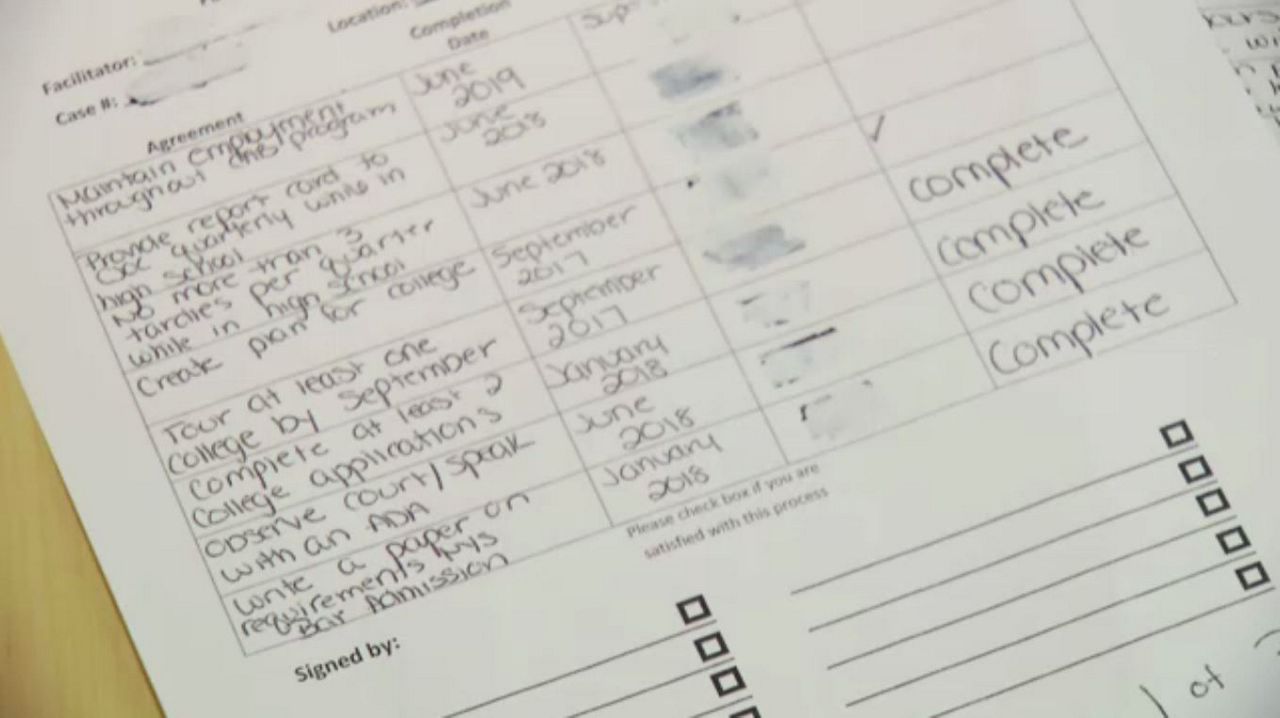 Location:
Facilitator:
Case #:
Agreement
Completion
Date
Sup
Maintain employment
throughout this program
June
2019
Provide report card to
quarterly while in
high school
June
2018
No more than 3
tardies per quarter
while in high school
June 2018
✓
Create plan for college
September
2017
complete
Tour at least one
college by September
September
2017
complete
complete at least 2
college applications
January
2018
complete
observe court/speak
with an ADA
June
2018
Complete
write a paper on
requirements NYS
Bar Admission
January
2018
Please check box if you are
satisfied with this process
Signed by:
1 of